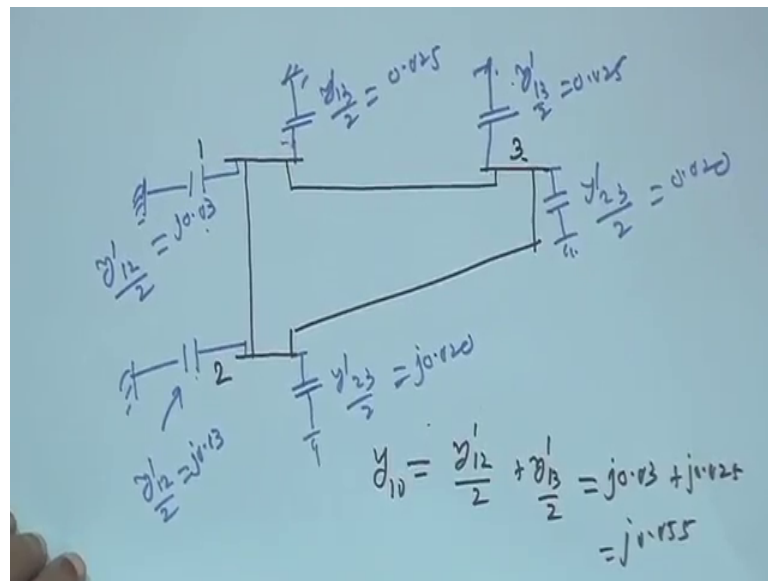 y'13/2 = 0.025
y'13/2 = 0.025
1
3.
y'12/2 = j0.03
y'23/2 = 0.020
2
y'23/2 = j0.020
y'12/2 = j0.03
y10 = y'12/2 + y'13/2 = j0.03 + j0.025
= j0.055